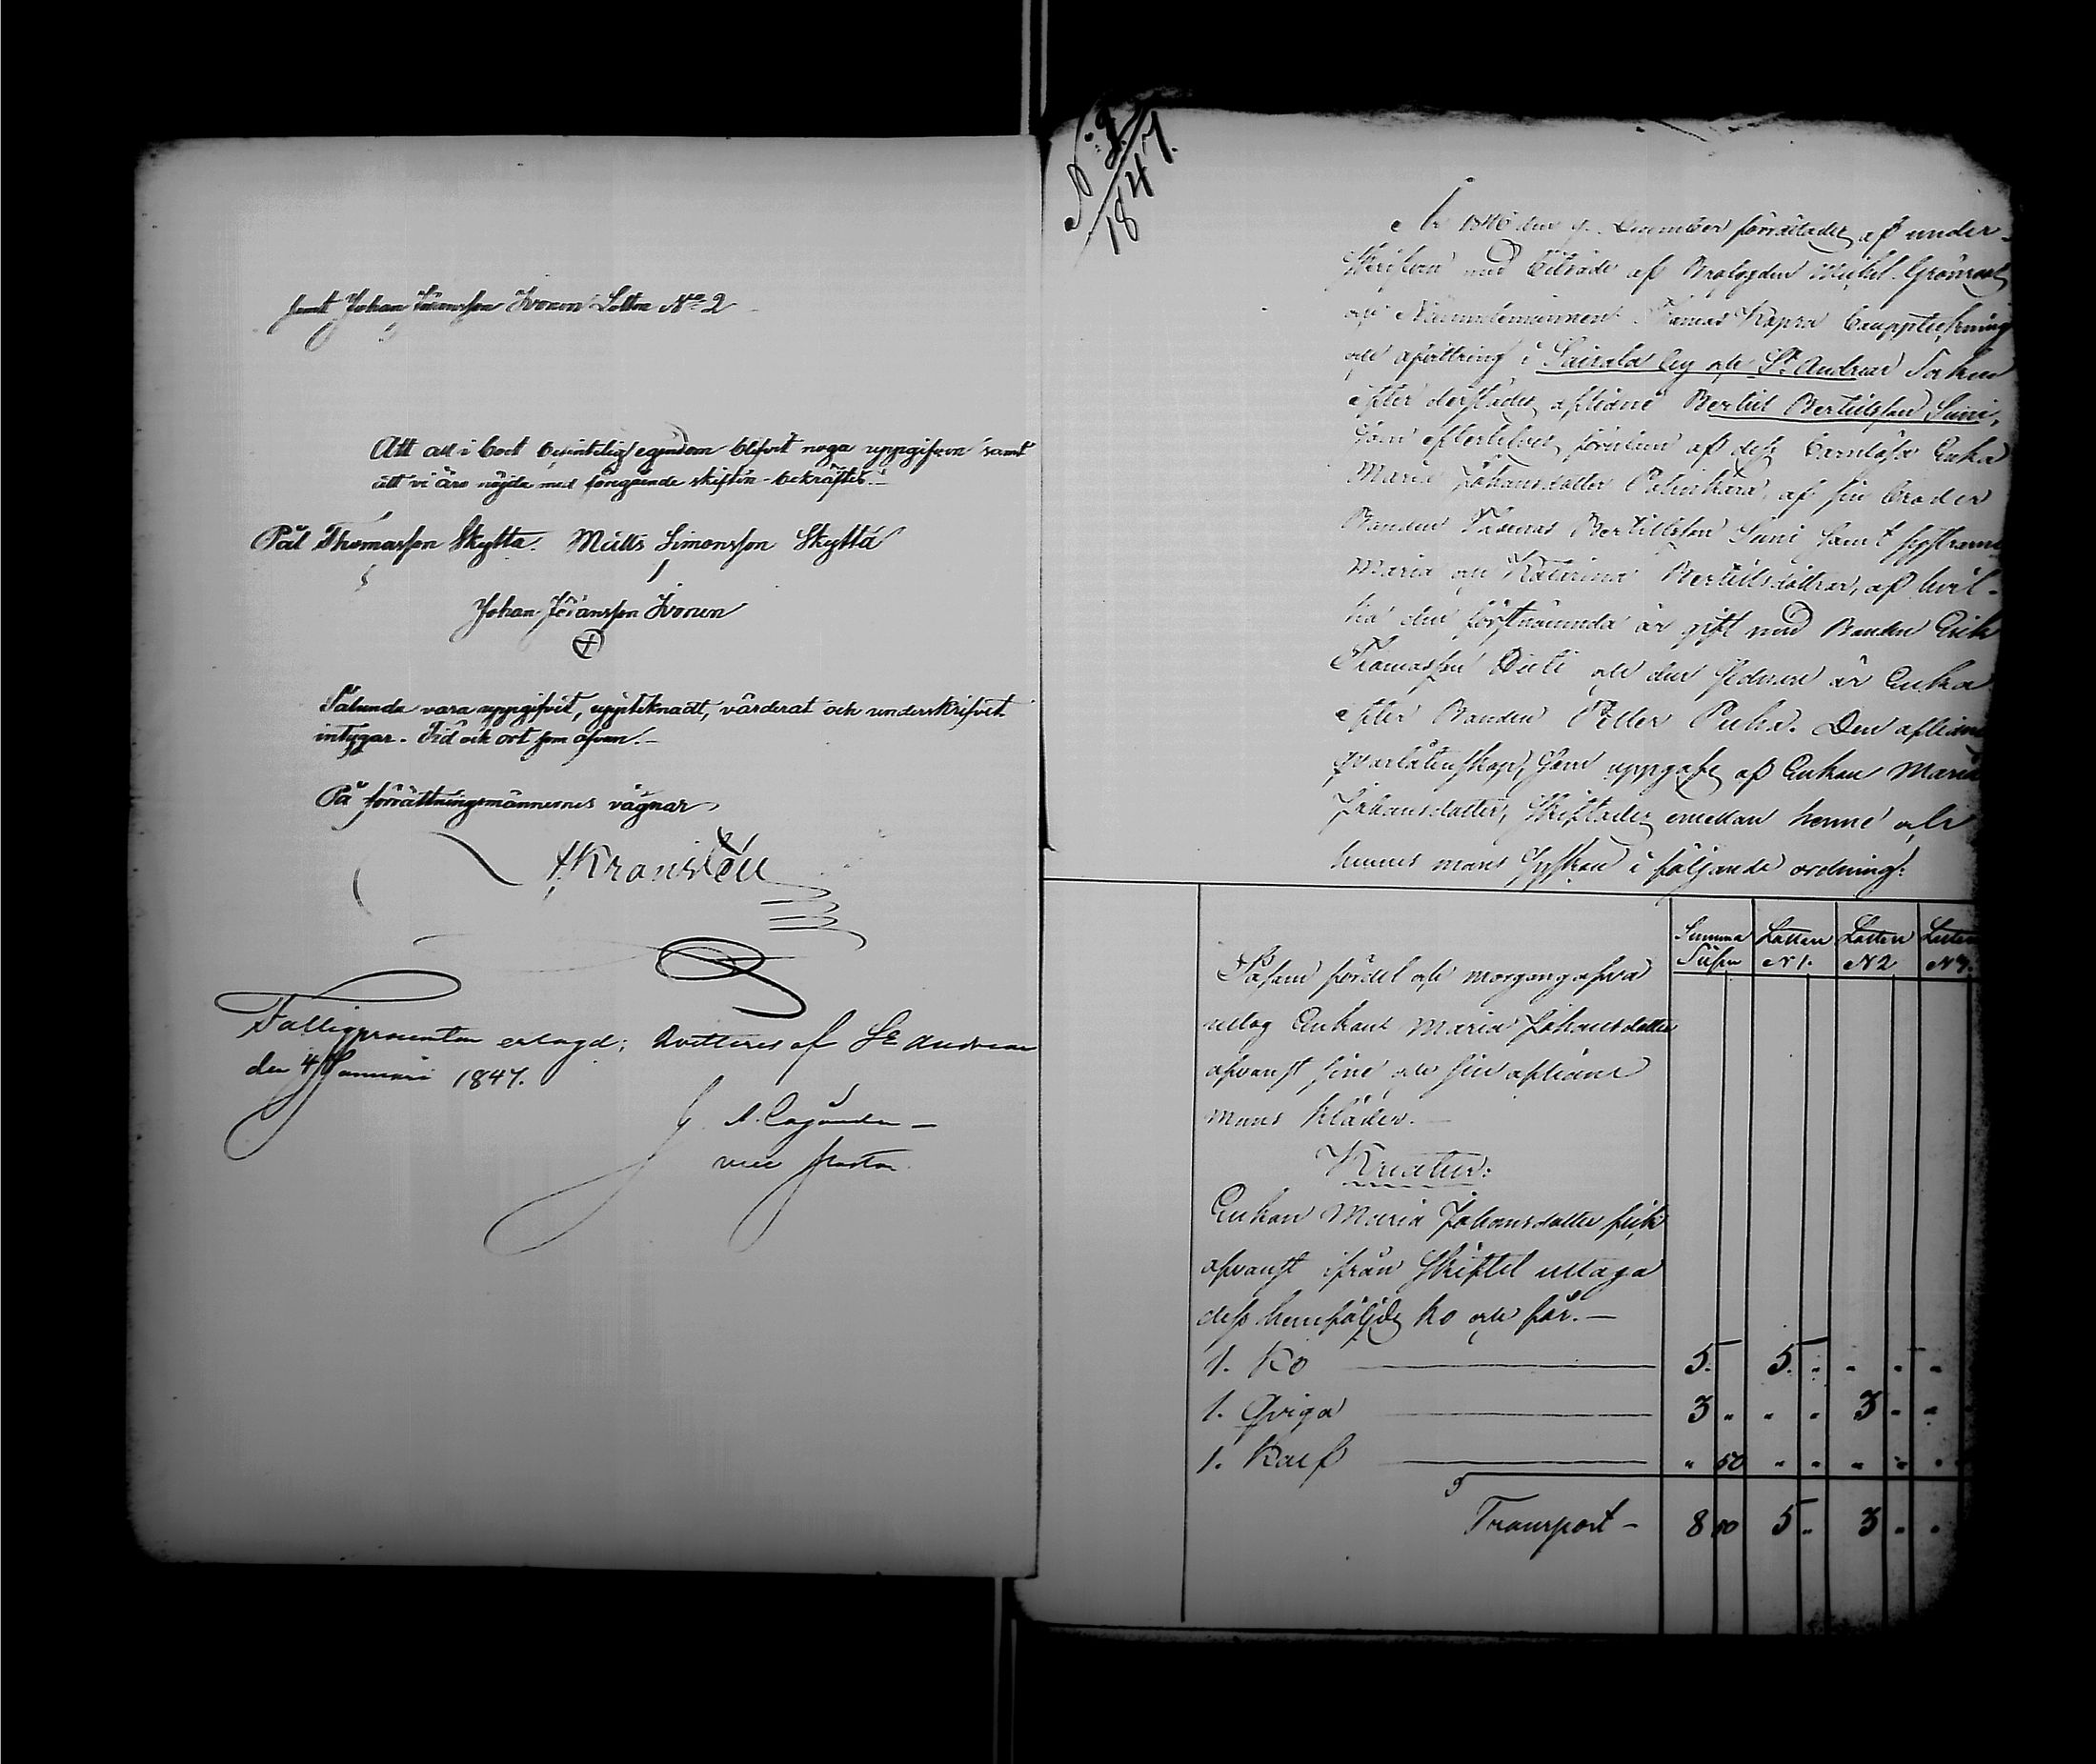 samt Johan Jöransson Ivonen Lotten No 2
Att all i boet befintelig egendom blifvit noga uppgifven samt
att vi äro nöjda med föregående skiften bekräftes.
Pål Thomasson Skyttä. Matts Simonsson Skyttä
Johan Jöransson Ivonen
Sålunda vara uppgifvit, uppteknadt, värderat och underskrifvet
intygar. Tid och ort som ofvan.
På förrättningsmännernes vägnar
Fattigprocenten erlagd; Qvitteres af St Andreae
den 4 Januari 1847.
vice Pastor
No 2/1847.
År 1846 den 9. December förrättades af under-
skrifven med biträde af Brofogden Michel Grönroos
och Nämndemannen Thomas Kopra bouppteckning
och afvittring i Sairala by och St Andreae Soken
efter derstädes aflidne Bertil Bertilsson Suni,
som efterlefves förutom af dess barnlösa Enka
Maria Johansdotter, af sin broder
Bonden Thomas Bertilsson Suni samt systrarne
Maria och Katarina Bertilsdöttrar, af hvil-
ka den förstnämnda är gift med Bonden Erik
Thomasson och den sednare är Enka
efter Bonden Petter Puka. Den aflidnes
qvarlåtenskap, som uppgafs af Enkan Maria
Johansdotter, skiftades emellan henne och
hennes mans syskon i följande ordning:
Summa Silfver Lotten N 1. Lotten N 2 Lotten N 3.
Såsom fördel och morgongåfva
uttog Enkan Maria Johansdotter
oskift sine och sin aflidne
mans kläder.
Kreatur:
Enkan Maria Johansdotter fick
oskift ifrån skiftet uttaga
dess hemföljds ko och får.
1. Ko 5. 5. " " " "
1. Qviga 3 " " " 3 " "
1. Kalf " 50 " " " " "
Transport 8 50 5 " 3 " "